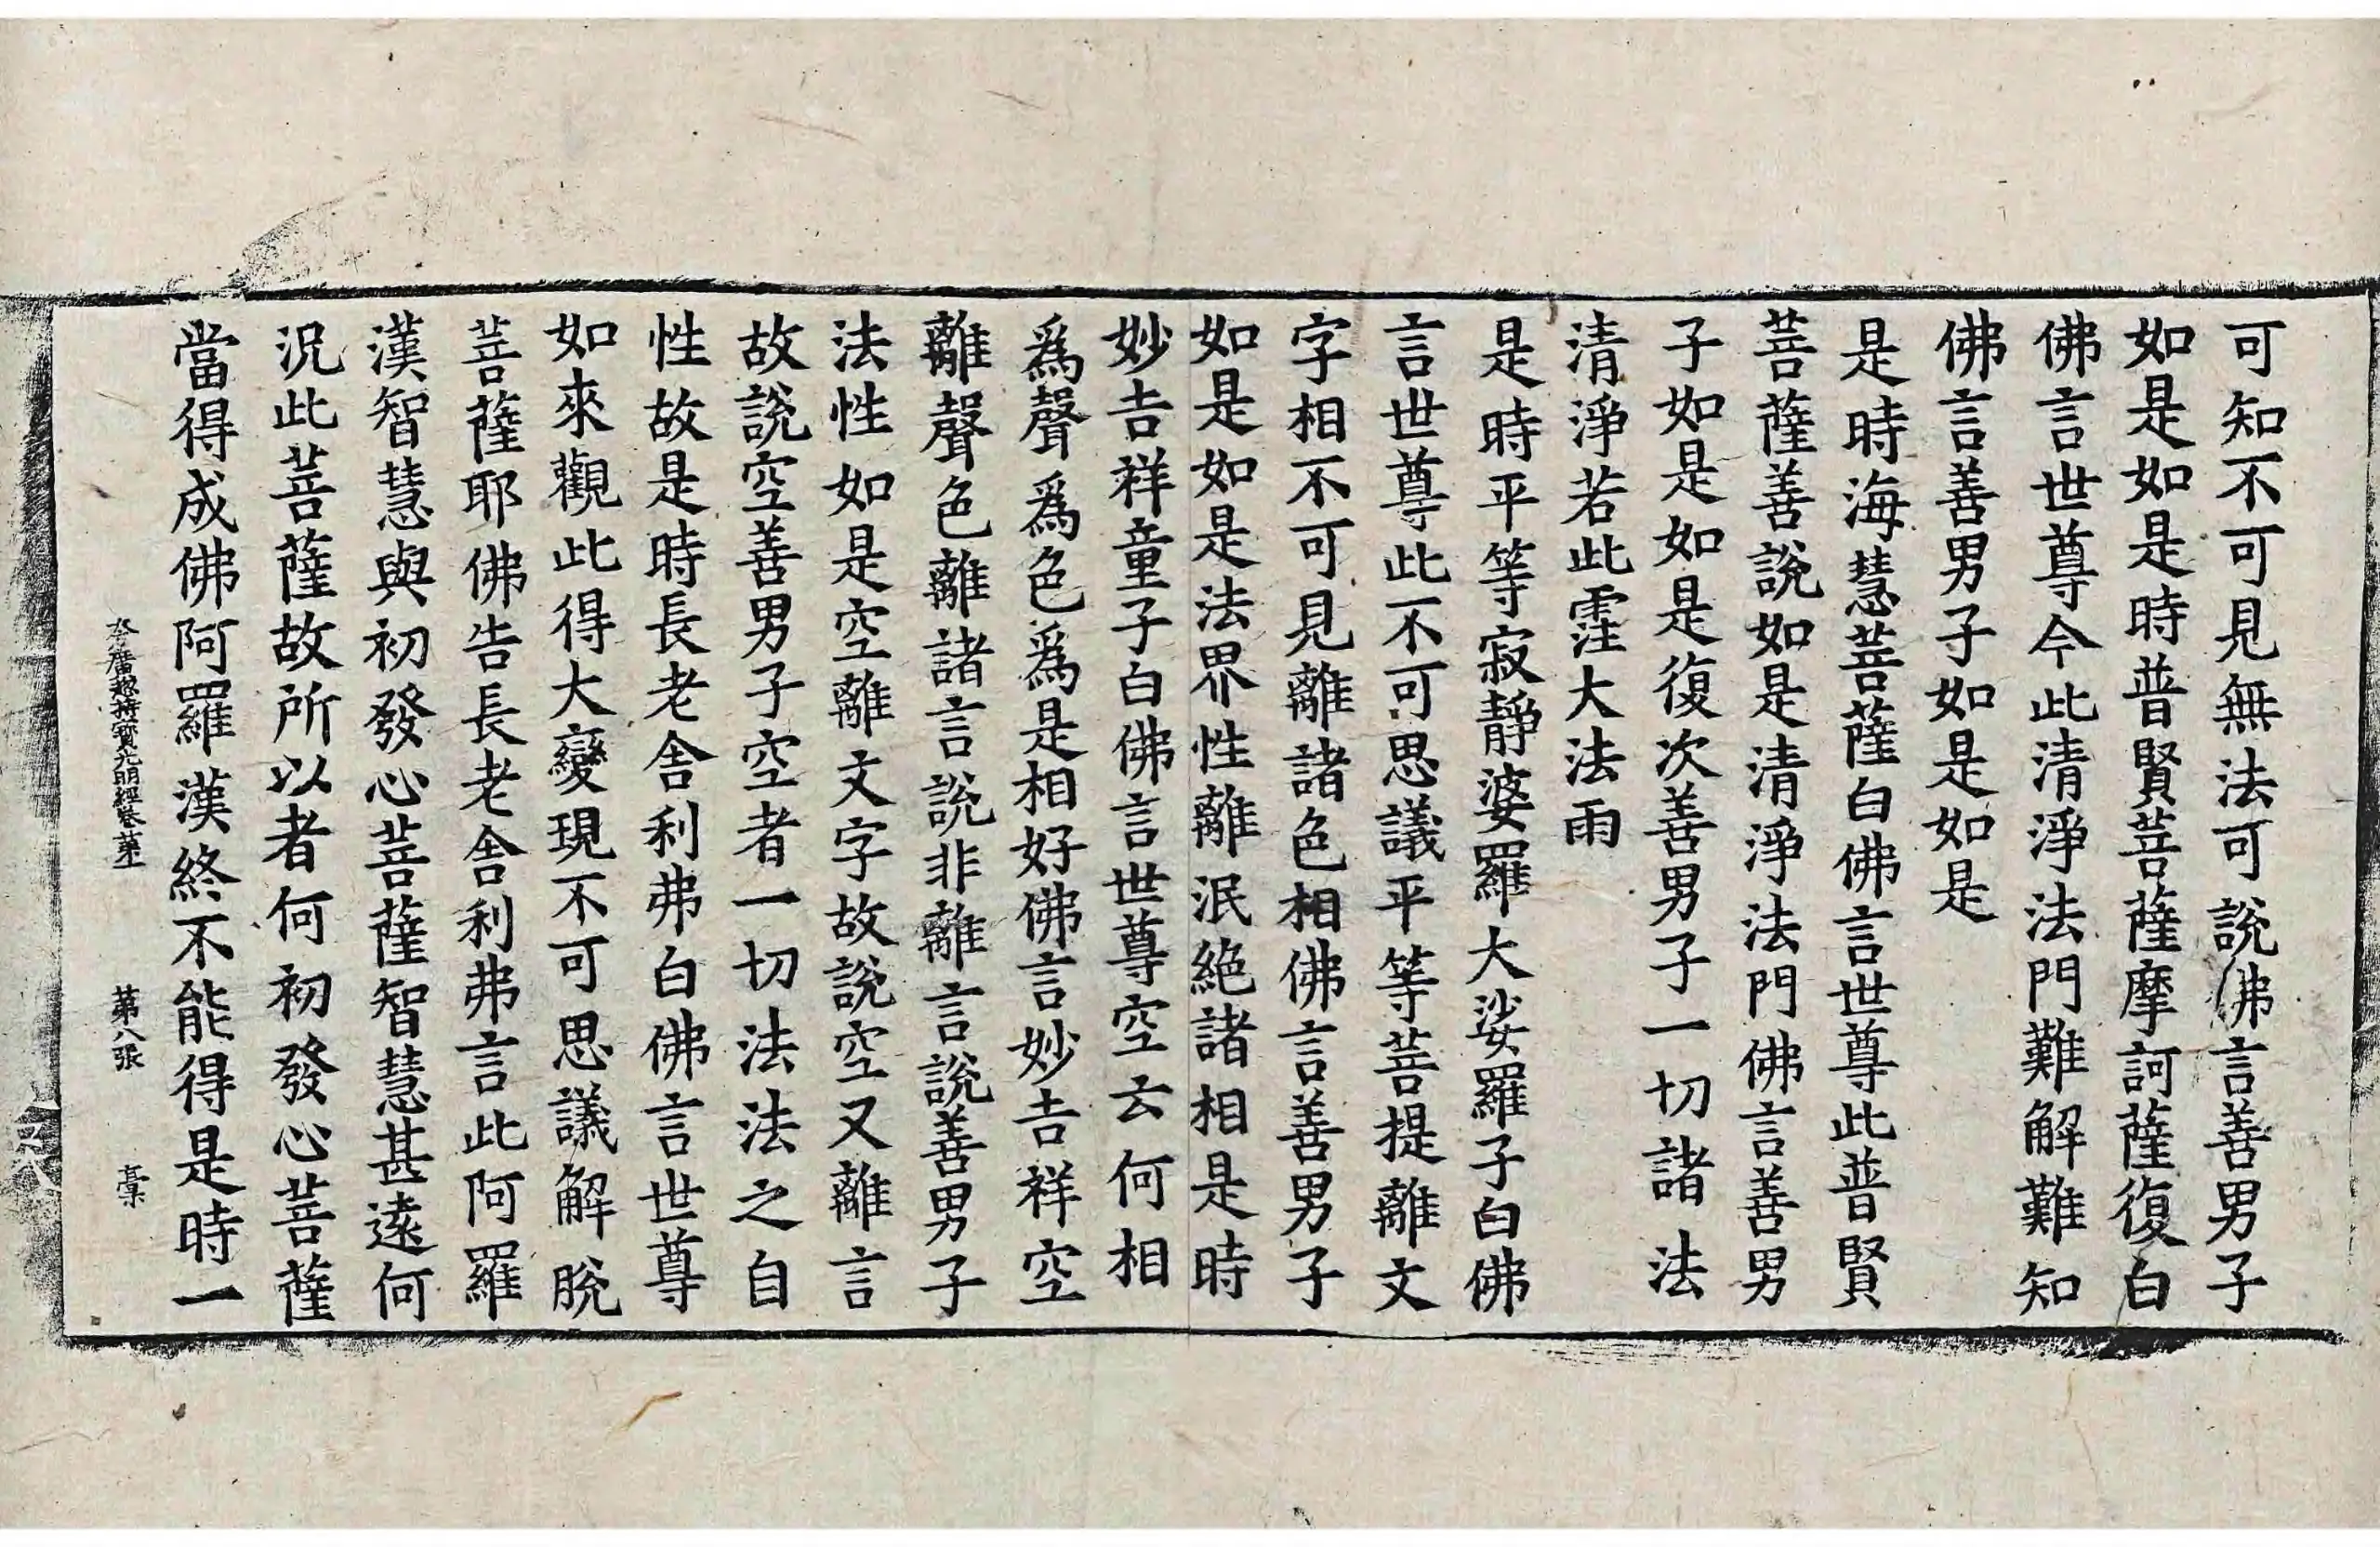 可知不可見無法可說佛言善男子
如是如是時普賢菩薩摩訶薩復白
佛言世尊今此清淨法門難解難知
佛言善男子如是如是
是時海慧菩薩白佛言世尊此普賢
菩薩善說如是清淨法門佛言善男
子如是如是復次善男子一切諸法
清淨若此霔大法雨
是時平等寂靜婆羅大娑羅子白佛
言世尊此不可思議平等菩提離文
字相不可見離諸色相佛言善男子
如是如是法界性離泯絕諸相是時
妙吉祥童子白佛言世尊空云何相
為聲為色為是相好佛言妙吉祥空
離聲色離諸言說非離言說善男子
法性如是空離文字故說空又離言
故說空善男子空者一切法法之自
性故是時長老舍利弗白佛言世尊
如來觀此得大變現不可思議解脫
菩薩耶佛告長老舍利弗言此阿羅
漢智慧與初發心菩薩智慧甚遠何
況此菩薩故所以者何初發心菩薩
當得成佛阿羅漢終不能得是時一
總持寶光明經卷第 第八張